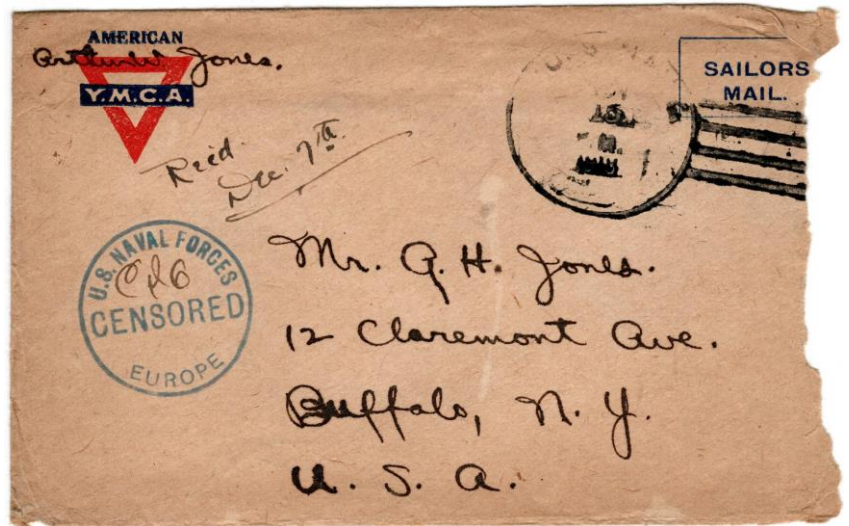 AMERICAN
Arthur W. Jones.
Y.M.C.A.
SAILORS
MAIL.
Rec'd.
Dec. 7th
U.S. NAVAL FORCES
CENSORED
EUROPE
Mr. A. H. Jones.
12 Claremont Ave.
Buffalo, N. Y.
U. S. A.